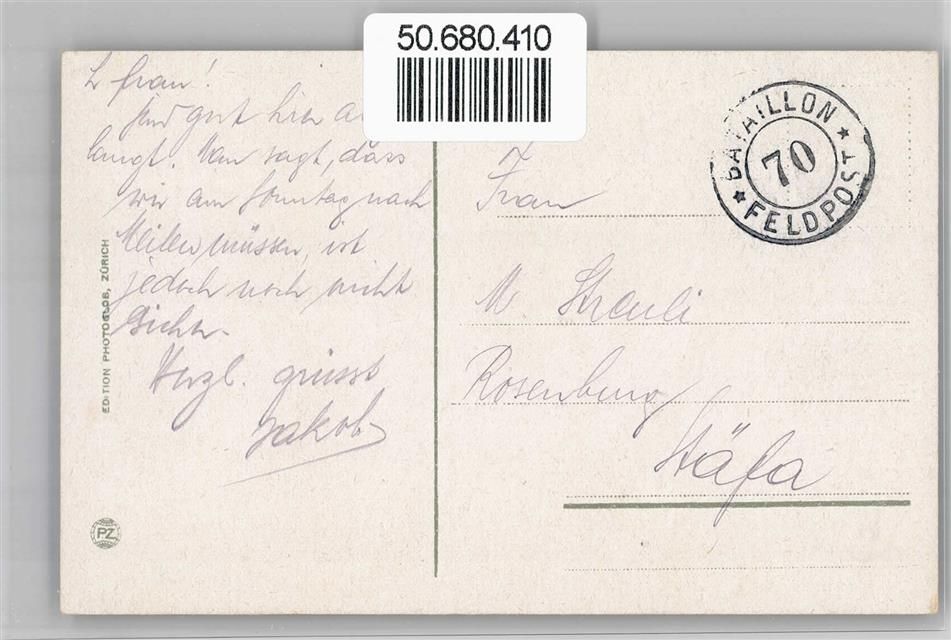 50.680.410
L. Frau!
Sind gut hier a
langt. Man sagt, dass
wir am Sonntag nach
müssen, ist
jedoch noch nicht
sicher.
Herzl. grüsst
Jakob
EDITION PHOTOGLOB, ZÜRICH
PZ
BATAILLON
70
FELDPOST
Frau
M. Sträuli
Rosenburg
Stäfa